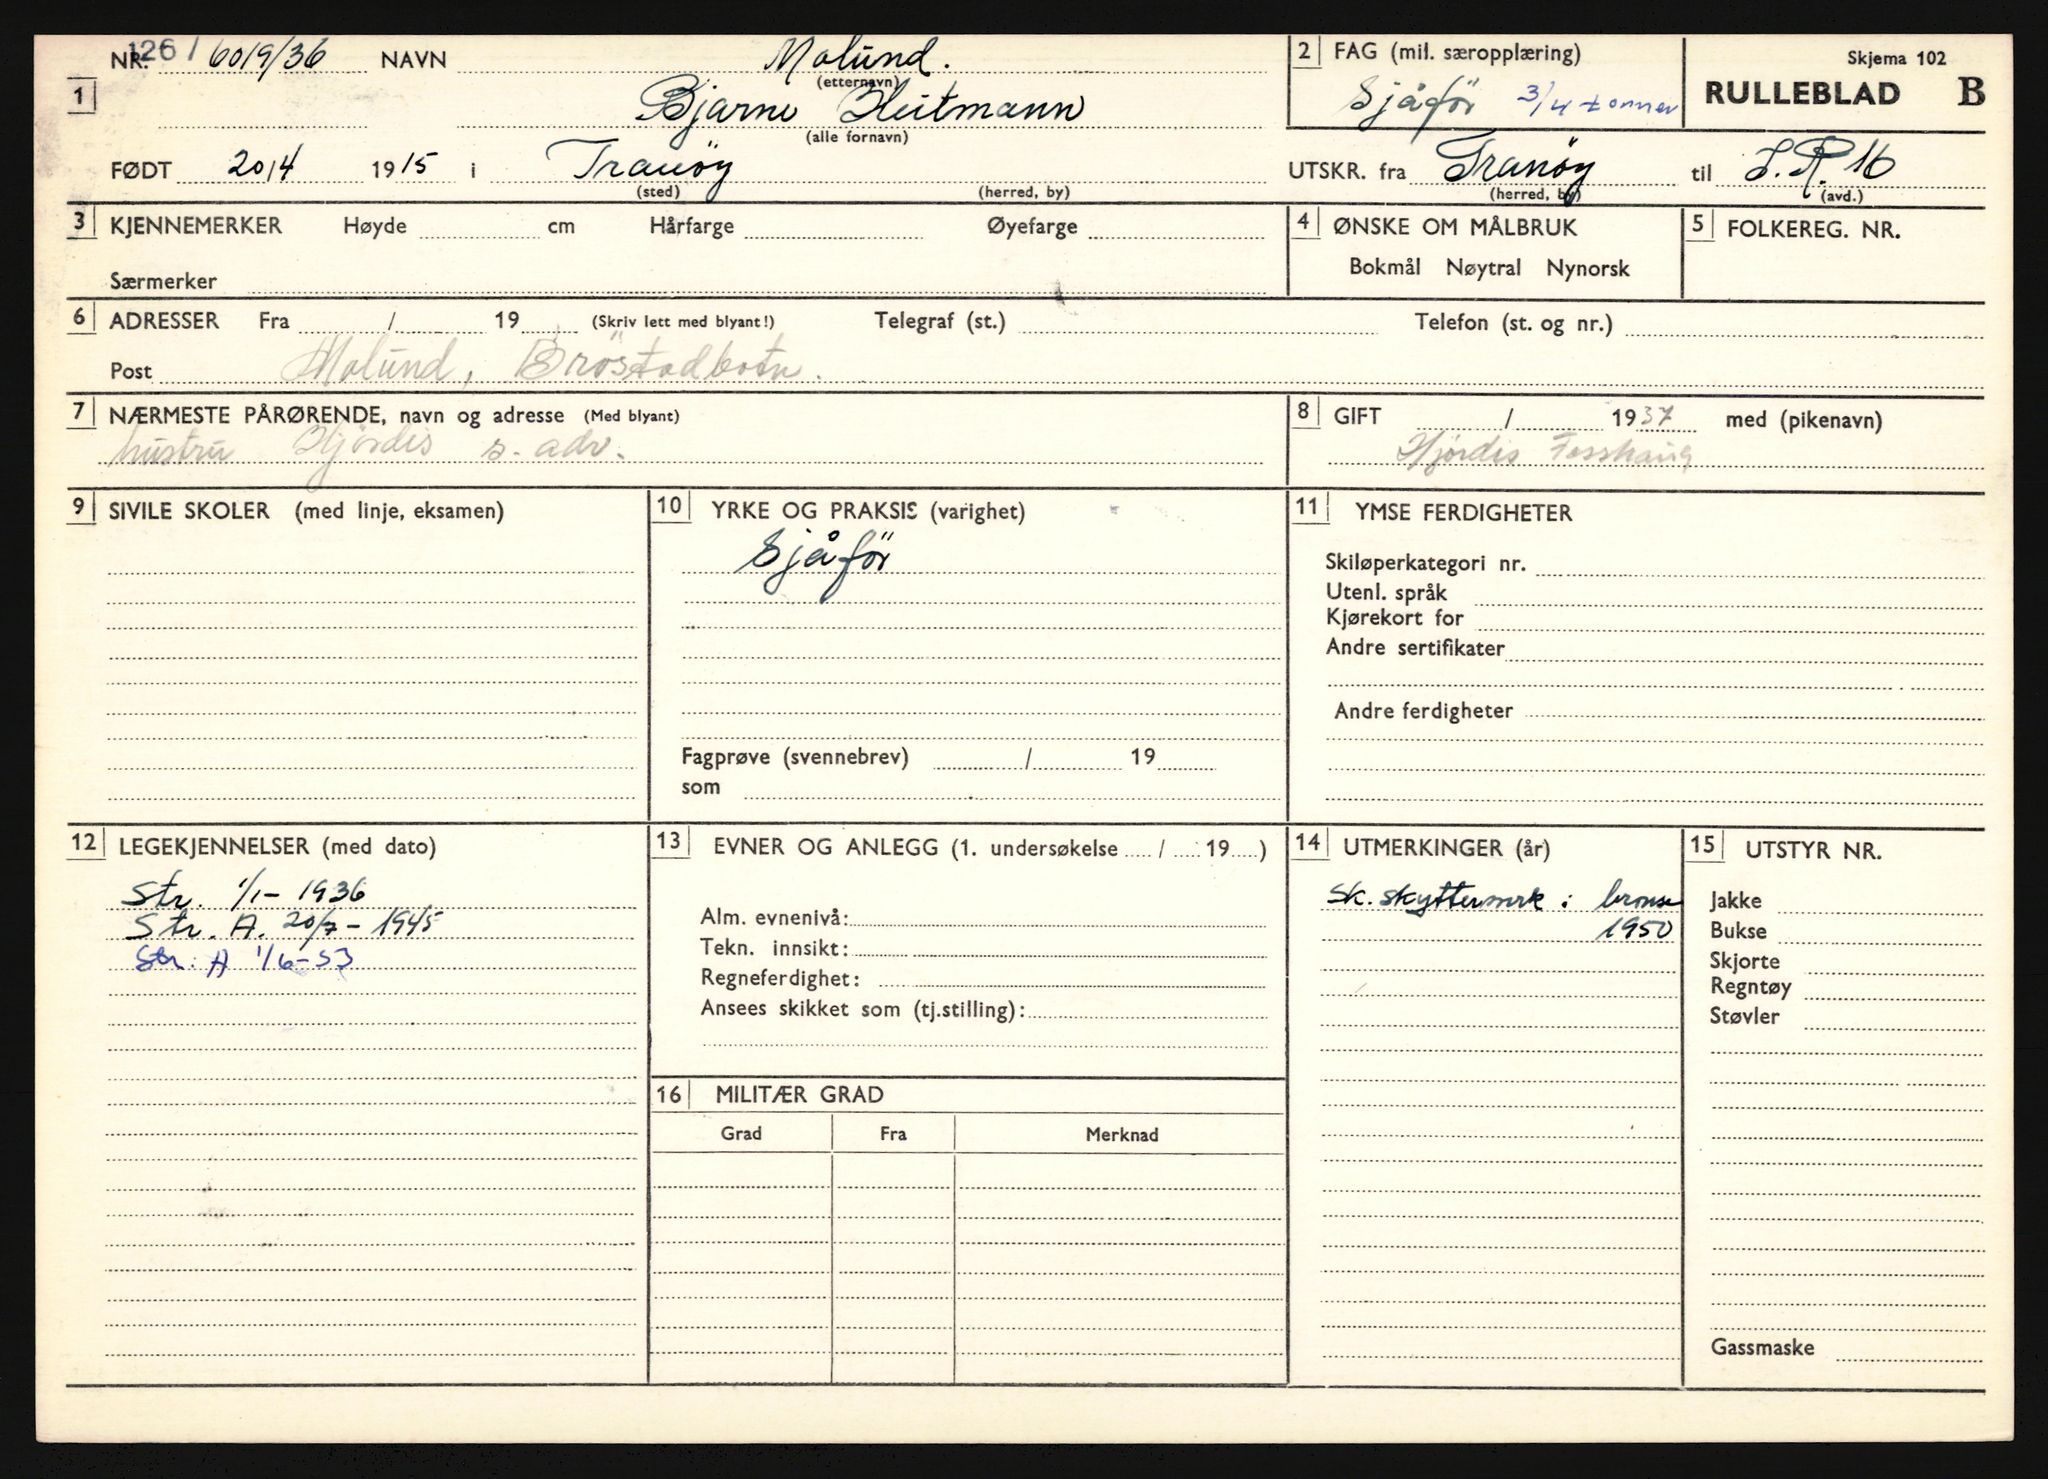 126/ NR. 6019/36 NAVN Molund. (etternavn)
1 Bjarne Heitmann (alle fornavn)
FØDT 20/4 1915 i Tranöy (sted) (herred, by)
2 FAG (mil. særopplæring)
Sjåför 3/4 tonner
Skjema 102
RULLEBLAD B
UTSKR. fra Tranöy (herred, by) til I.R. 16 (avd.)
3 KJENNEMERKER Høyde cm Hårfarge Øyefarge
Særmerker
4 ØNSKE OM MÅLBRUK
Bokmål Nøytral Nynorsk
5 FOLKEREG. NR.
6 ADRESSER Fra / 19 (Skriv lett med blyant!) Telegraf (st.) Telefon (st. og nr.)
Post Molund, Bröstadbotn.
7 NÆRMESTE PÅRØRENDE, navn og adresse (Med blyant)
hustru Hjördis s. adr.
8 GIFT / 1937 med (pikenavn)
Hjördis
9 SIVILE SKOLER (med linje, eksamen)
10 YRKE OG PRAKSIS (varighet)
Sjåför
Fagprøve (svennebrev) / 19
som
11 YMSE FERDIGHETER
Skiløperkategori nr.
Utenl. språk
Kjørekort for
Andre sertifikater
Andre ferdigheter
12 LEGEKJENNELSER (med dato)
Str. 1/1- 1936
Str. A. 20/7 - 1945
Str. A 1/6-53
13 EVNER OG ANLEGG (1. undersøkelse / 19 )
Alm. evnenivå:
Tekn. innsikt:
Regneferdighet:
Ansees skikket som (tj.stilling):
14 UTMERKINGER (år)
Sk. skyttermerk i bronse
1950
15 UTSTYR NR.
Jakke
Bukse
Skjorte
Regntøy
Støvler
Gassmaske
16 MILITÆR GRAD
Grad Fra Merknad